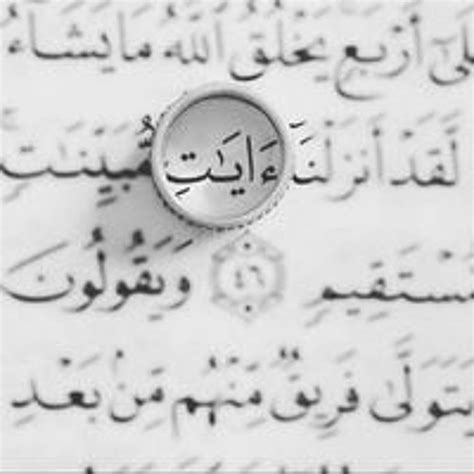 عَلَىٰٓ أَرۡبَعٖۚ يَخۡلُقُ ٱللَّهُ مَا يَشَآءُ
لَّقَدۡ أَنزَلۡنَآ ءَايَٰتٖ مُّبَيِّنَٰتٖ
مُّسۡتَقِيمٖ ٤٦ وَيَقُولُونَ
يَتَوَلَّىٰ فَرِيقٞ مِّنۡهُم مِّنۢ بَعۡدِ